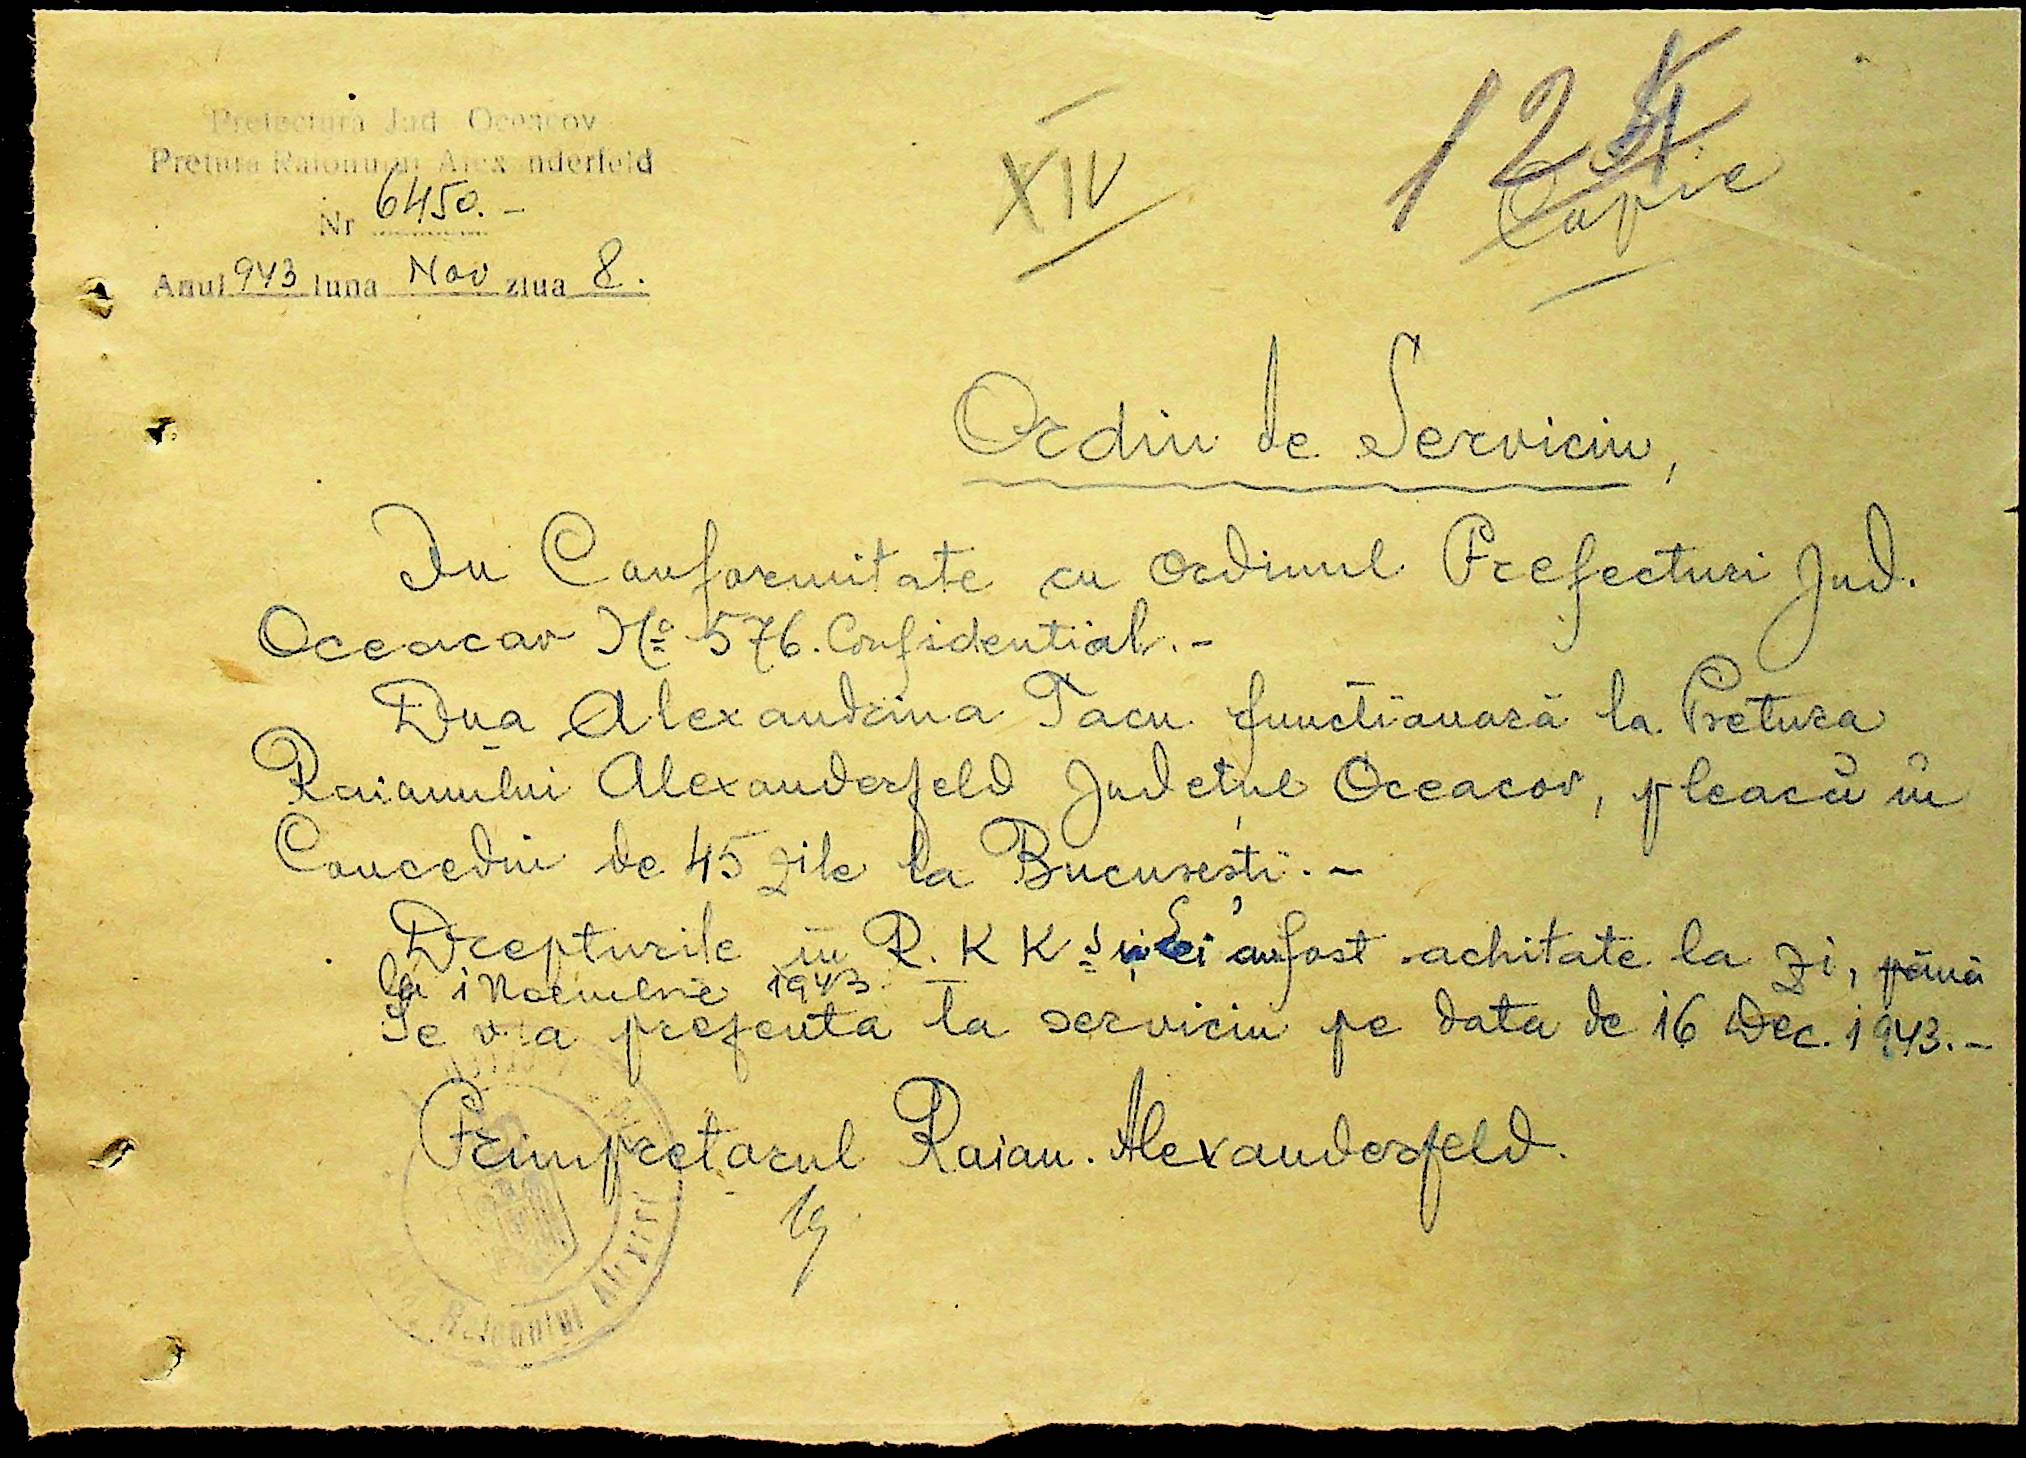 Prefectura Jud. Oceacov
Pretura Raionului Alexanderfeld
Nr 6450.-
Anul 943 luna Nov ziua 8.
XIV
12
Copie
Ordin de Serviciu,
In Conformitate cu ordinul Prefecturi Jud.
Oceacov No 576. Confidential.-
Dna Alexandrina Tacu functionară la Pretura
Raionului Alexanderfeld Judetul Oceacov, pleacă în
Concediu de 45 zile la București.-
Drepturile in R.K.K.S și Lei au fost achitate la zi, până
la 1 Noembrie 1943.
Se va prezenta la serviciu pe data de 16 Dec. 1943.-
Primpretorul Raion. Alexanderfeld.
Raionului